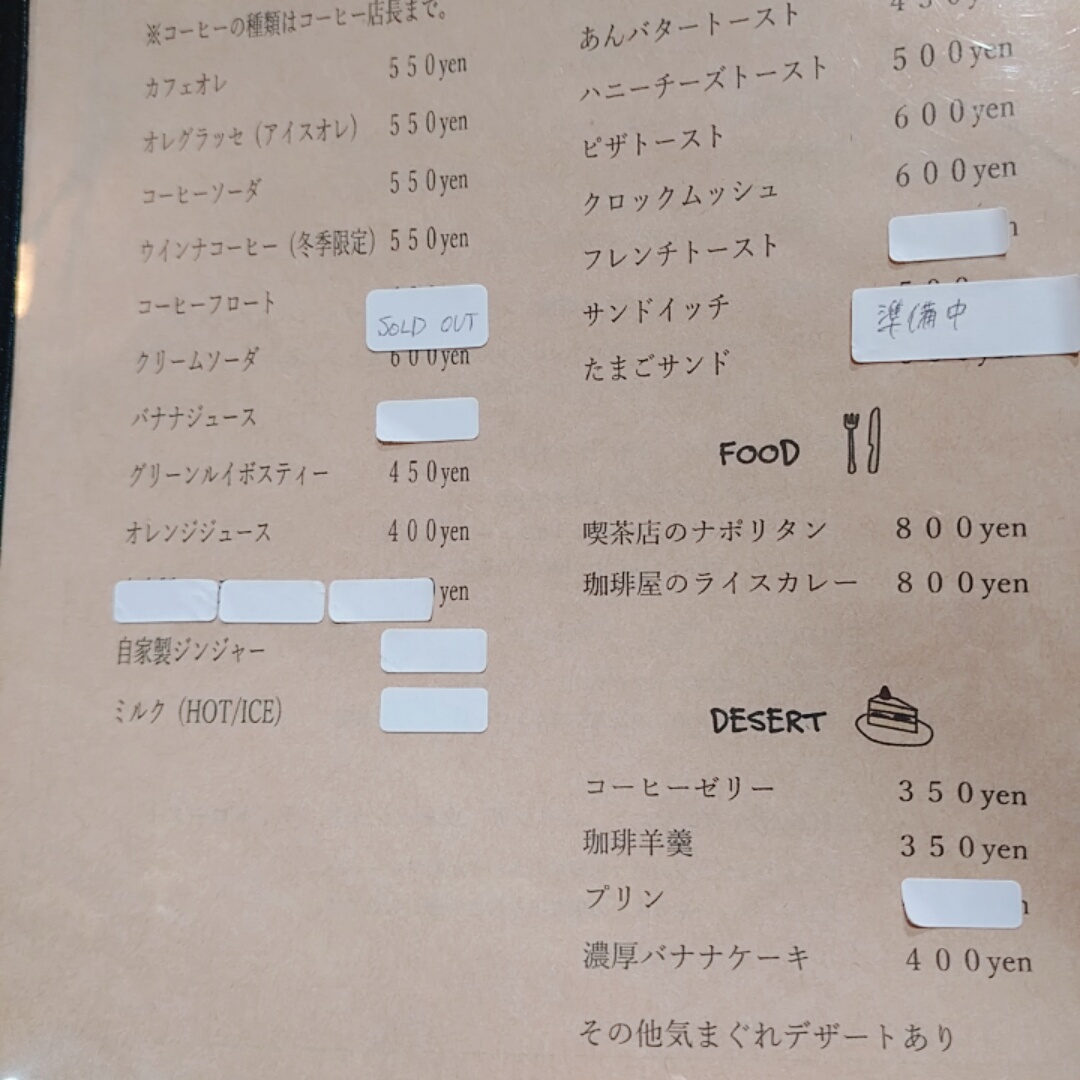 ※コーヒーの種類はコーヒー店長まで。
カフェオレ 550yen
オレグラッセ（アイスオレ） 550yen
コーヒーソーダ 550yen
ウインナコーヒー（冬季限定） 550yen
コーヒーフロート SOLD OUT
クリームソーダ 600yen
バナナジュース
グリーンルイボスティー 450yen
オレンジジュース 400yen
yen
自家製ジンジャー
ミルク（HOT/ICE）
あんバタートースト
ハニーチーズトースト 500yen
ピザトースト 600yen
クロックムッシュ 600yen
フレンチトースト
サンドイッチ 準備中
たまごサンド
FOOD
喫茶店のナポリタン 800yen
珈琲屋のライスカレー 800yen
DESERT
コーヒーゼリー 350yen
珈琲羊羹 350yen
プリン
濃厚バナナケーキ 400yen
その他気まぐれデザートあり